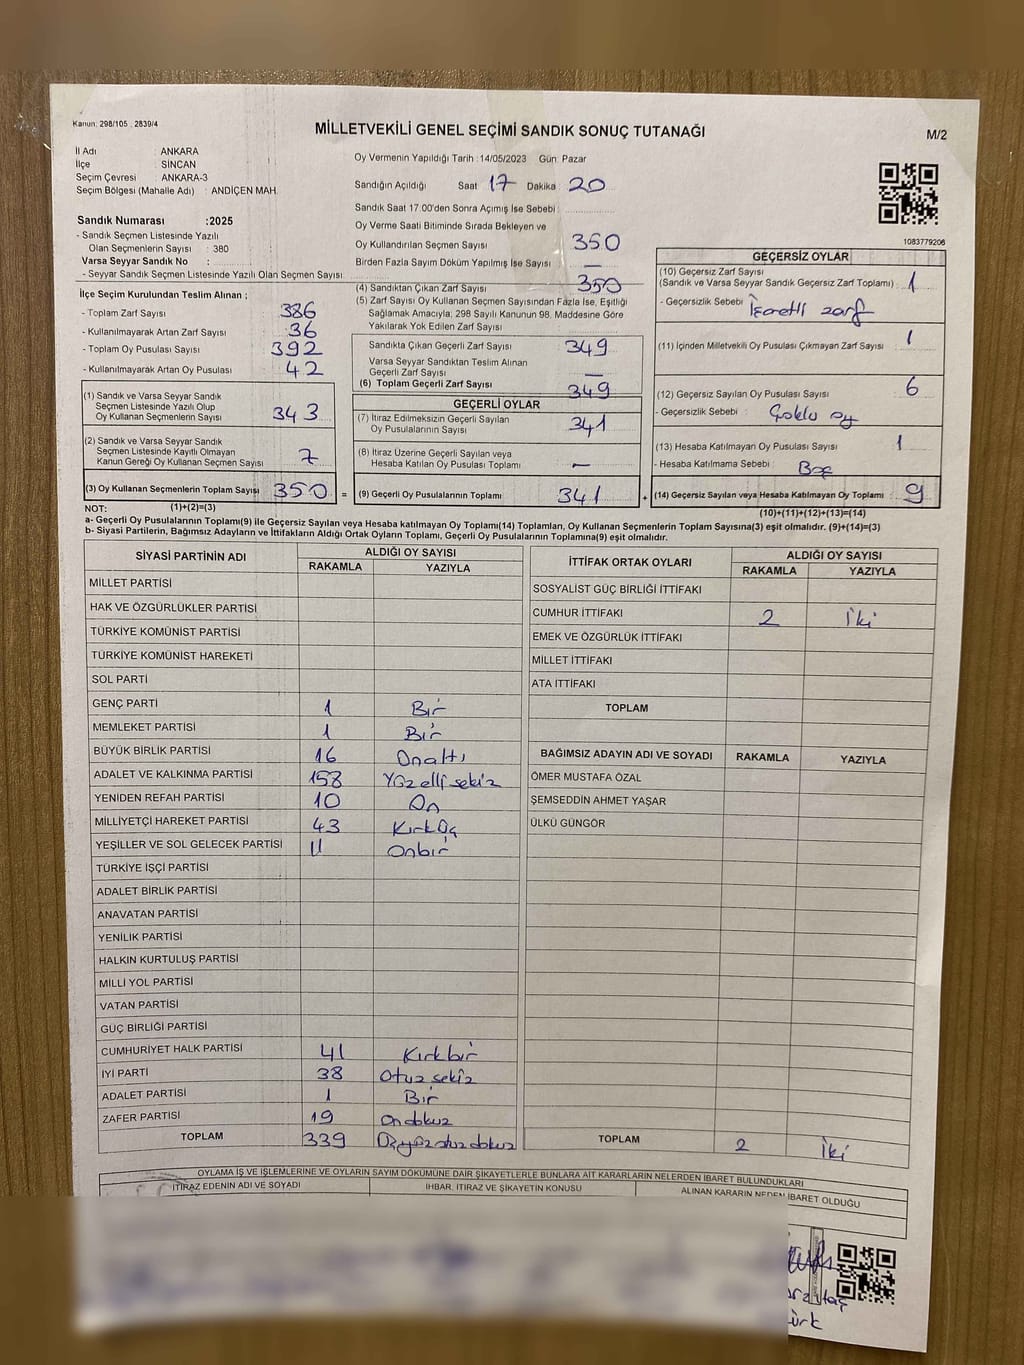 Kanun: 298/105 , 2839/4
MİLLETVEKİLİ GENEL SEÇİMİ SANDIK SONUÇ TUTANAĞI
M/2
İl Adı : ANKARA
İlçe : SİNCAN
Seçim Çevresi : ANKARA-3
Seçim Bölgesi (Mahalle Adı) : ANDİÇEN MAH.
Sandık Numarası :2025
- Sandık Seçmen Listesinde Yazılı
Olan Seçmenlerin Sayısı : 380
Varsa Seyyar Sandık No :
- Seyyar Sandık Seçmen Listesinde Yazılı Olan Seçmen Sayısı:
İlçe Seçim Kurulundan Teslim Alınan ;
- Toplam Zarf Sayısı 386
- Kullanılmayarak Artan Zarf Sayısı 36
- Toplam Oy Pusulası Sayısı 392
- Kullanılmayarak Artan Oy Pusulası 42
(1) Sandık ve Varsa Seyyar Sandık
Seçmen Listesinde Yazılı Olup
Oy Kullanan Seçmenlerin Sayısı 343
(2) Sandık ve Varsa Seyyar Sandık
Seçmen Listesinde Kayıtlı Olmayan
Kanun Gereği Oy Kullanan Seçmen Sayısı 7
(3) Oy Kullanan Seçmenlerin Toplam Sayısı 350 =
Oy Vermenin Yapıldığı Tarih :14/05/2023 Gün: Pazar
Sandığın Açıldığı Saat 17 Dakika 20
Sandık Saat 17:00'den Sonra Açımış İse Sebebi :
Oy Verme Saati Bitiminde Sırada Bekleyen ve
Oy Kullandırılan Seçmen Sayısı 350
Birden Fazla Sayım Döküm Yapılmış İse Sayısı —
(4) Sandıktan Çıkan Zarf Sayısı 350
(5) Zarf Sayısı Oy Kullanan Seçmen Sayısından Fazla İse, Eşitliği
Sağlamak Amacıyla, 298 Sayılı Kanunun 98. Maddesine Göre
Yakılarak Yok Edilen Zarf Sayısı
Sandıkta Çıkan Geçerli Zarf Sayısı 349
Varsa Seyyar Sandıktan Teslim Alınan
Geçerli Zarf Sayısı —
(6) Toplam Geçerli Zarf Sayısı 349
GEÇERLİ OYLAR
(7) İtiraz Edilmeksizin Geçerli Sayılan
Oy Pusulalarının Sayısı 341
(8) İtiraz Üzerine Geçerli Sayılan veya
Hesaba Katılan Oy Pusulası Toplamı —
(9) Geçerli Oy Pusulalarının Toplamı 341 +
1083779206
GEÇERSİZ OYLAR
(10) Geçersiz Zarf Sayısı
(Sandık ve Varsa Seyyar Sandık Geçersiz Zarf Toplamı) : 1
- Geçersizlik Sebebi : İşaretli zarf
(11) İçinden Milletvekili Oy Pusulası Çıkmayan Zarf Sayısı 1
(12) Geçersiz Sayılan Oy Pusulası Sayısı 6
- Geçersizlik Sebebi : Çoklu oy
(13) Hesaba Katılmayan Oy Pusulası Sayısı 1
- Hesaba Katılmama Sebebi : Boş
(14) Geçersiz Sayılan veya Hesaba Katılmayan Oy Toplamı 9
NOT: (1)+(2)=(3)
(10)+(11)+(12)+(13)=(14)
a- Geçerli Oy Pusulalarının Toplamı(9) ile Geçersiz Sayılan veya Hesaba katılmayan Oy Toplamı(14) Toplamları, Oy Kullanan Seçmenlerin Toplam Sayısına(3) eşit olmalıdır. (9)+(14)=(3)
b- Siyasi Partilerin, Bağımsız Adayların ve İttifakların Aldığı Ortak Oyların Toplamı, Geçerli Oy Pusulalarının Toplamına(9) eşit olmalıdır.
SİYASİ PARTİNİN ADI ALDIĞI OY SAYISI
RAKAMLA YAZIYLA
MİLLET PARTİSİ
HAK VE ÖZGÜRLÜKLER PARTİSİ
TÜRKİYE KOMÜNİST PARTİSİ
TÜRKİYE KOMÜNİST HAREKETİ
SOL PARTİ
GENÇ PARTİ 1 Bir
MEMLEKET PARTİSİ 1 Bir
BÜYÜK BİRLİK PARTİSİ 16 Onaltı
ADALET VE KALKINMA PARTİSİ 158 Yüzellisekiz
YENİDEN REFAH PARTİSİ 10 On
MİLLİYETÇİ HAREKET PARTİSİ 43 Kırküç
YEŞİLLER VE SOL GELECEK PARTİSİ 11 Onbir
TÜRKİYE İŞÇİ PARTİSİ
ADALET BİRLİK PARTİSİ
ANAVATAN PARTİSİ
YENİLİK PARTİSİ
HALKIN KURTULUŞ PARTİSİ
MİLLİ YOL PARTİSİ
VATAN PARTİSİ
GÜÇ BİRLİĞİ PARTİSİ
CUMHURİYET HALK PARTİSİ 41 Kırkbir
İYİ PARTİ 38 Otuzsekiz
ADALET PARTİSİ 1 Bir
ZAFER PARTİSİ 19 Ondokuz
TOPLAM 339 Üçyüzotuzdokuz
İTTİFAK ORTAK OYLARI ALDIĞI OY SAYISI
RAKAMLA YAZIYLA
SOSYALİST GÜÇ BİRLİĞİ İTTİFAKI
CUMHUR İTTİFAKI 2 İki
EMEK VE ÖZGÜRLÜK İTTİFAKI
MİLLET İTTİFAKI
ATA İTTİFAKI
TOPLAM
BAĞIMSIZ ADAYIN ADI VE SOYADI RAKAMLA YAZIYLA
ÖMER MUSTAFA ÖZAL
ŞEMSEDDİN AHMET YAŞAR
ÜLKÜ GÜNGÖR
TOPLAM 2 İki
OYLAMA İŞ VE İŞLEMLERİNE VE OYLARIN SAYIM DÖKÜMÜNE DAİR ŞİKAYETLERLE BUNLARA AİT KARARLARIN NELERDEN İBARET BULUNDUKLARI
İTİRAZ EDENİN ADI VE SOYADI İHBAR, İTİRAZ VE ŞİKAYETİN KONUSU ALINAN KARARIN NEDEN İBARET OLDUĞU